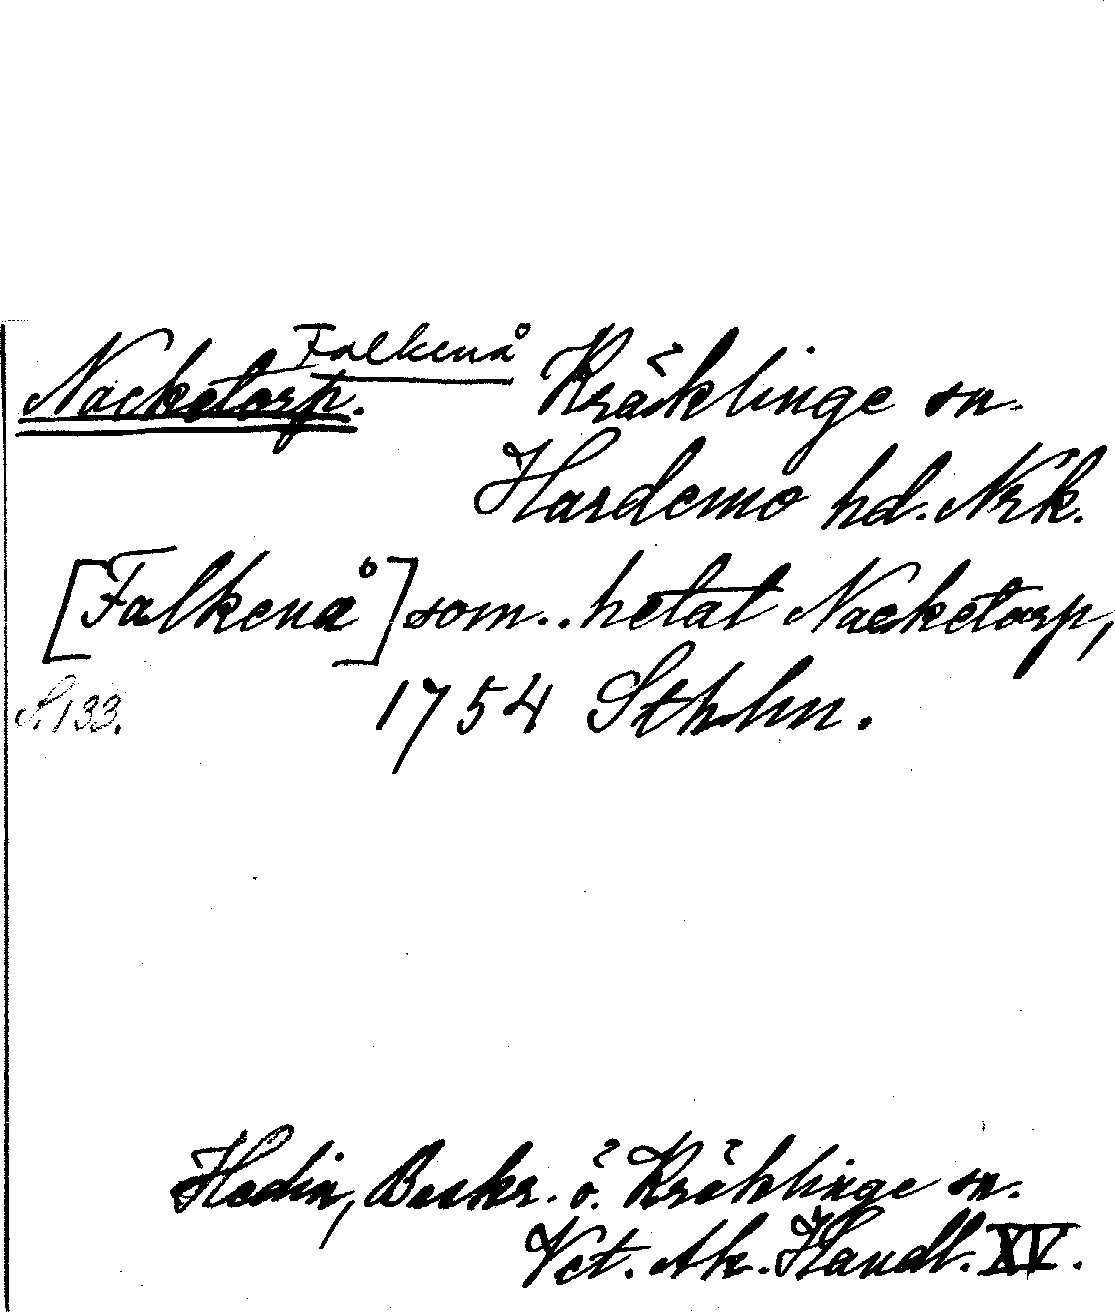 Falkenå
Nacketorp. Kräklinge sn.
Hardemo hd. Nrk.
[Falkenå] som.. hetat Nacketorp,
S. 133. 1754 Sthlm.
Hedin, Beskr. ö. Kräklinge sn.
Vet. Ak. Handl. XV.